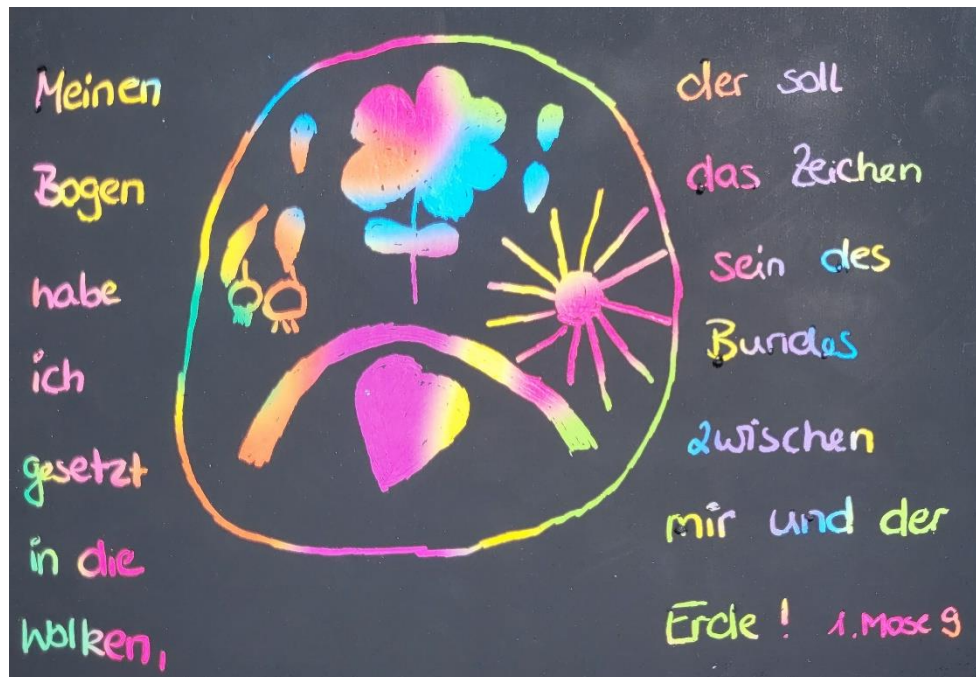 Meinen
Bogen
habe
ich
gesetzt
in die
Wolken,
der soll
das Zeichen
sein des
Bundes
zwischen
mir und der
Erde! 1. Mose 9